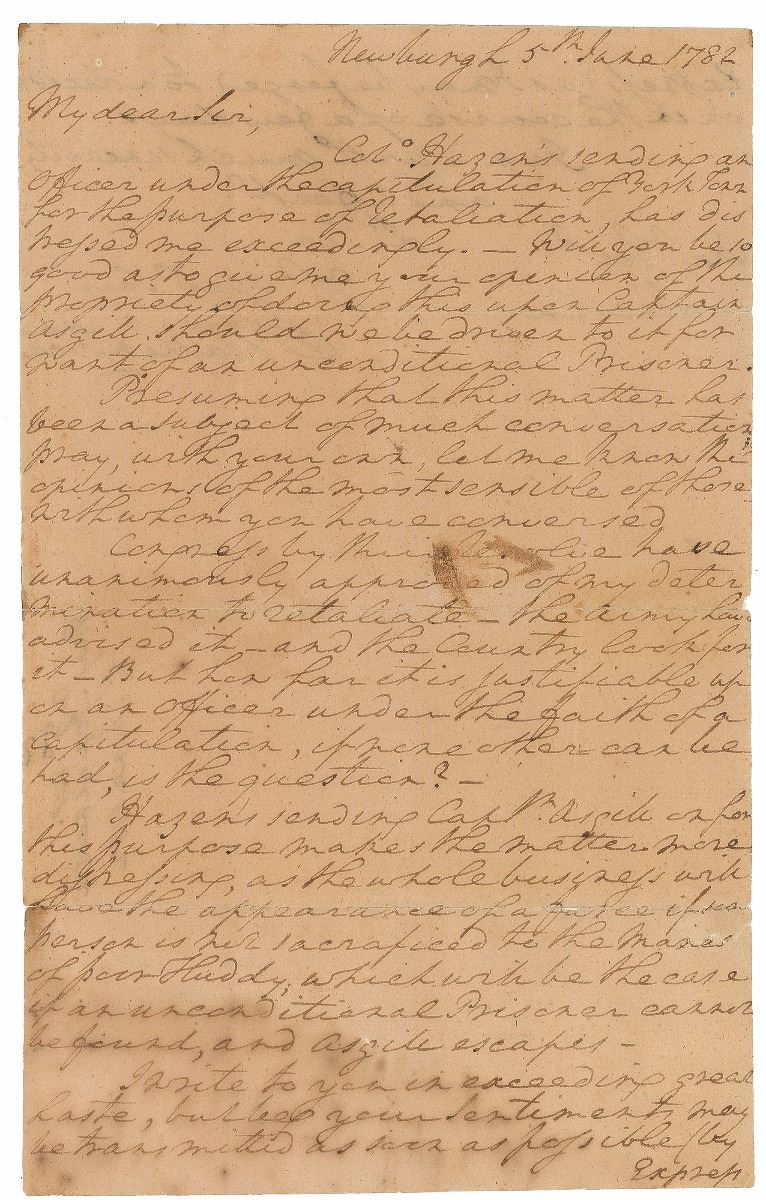 Newburgh 5th June 1782
My dear Sir,
Colo. Hazen's sending an
Officer under the capitulation of York Town
for the purpose of Retaliation, has dis
tressed me exceedingly. — Will you be so
good as to give me your opinion of the
propriety of doing this upon Captain
Asgill, should we be driven to it for
want of an unconditional Prisoner.
Presuming that this matter has
been a subject of much conversation
pray, with your own, let me know the
opinions of the most sensible of those
with whom you have conversed
Congress by their Resolve have
unanimously approved of my deter
mination to retaliate — the army have
advised it — and the Country look for
it — But how far it is justifiable up
on an Officer under the faith of a
Capitulation, if none other can be
had, is the question? —
Hazen's sending Captn. Asgill on for
this purpose makes the matter more
distressing, as the whole business will
have the appearance of a farce if some
person is not sacraficed to the Manes
of poor Huddy, which will be the case
if an unconditional Prisoner cannot
be found, and Asgill escapes —
I write to you in exceeding great
haste, but beg your sentiments may
be transmitted as soon as possible (by
Express